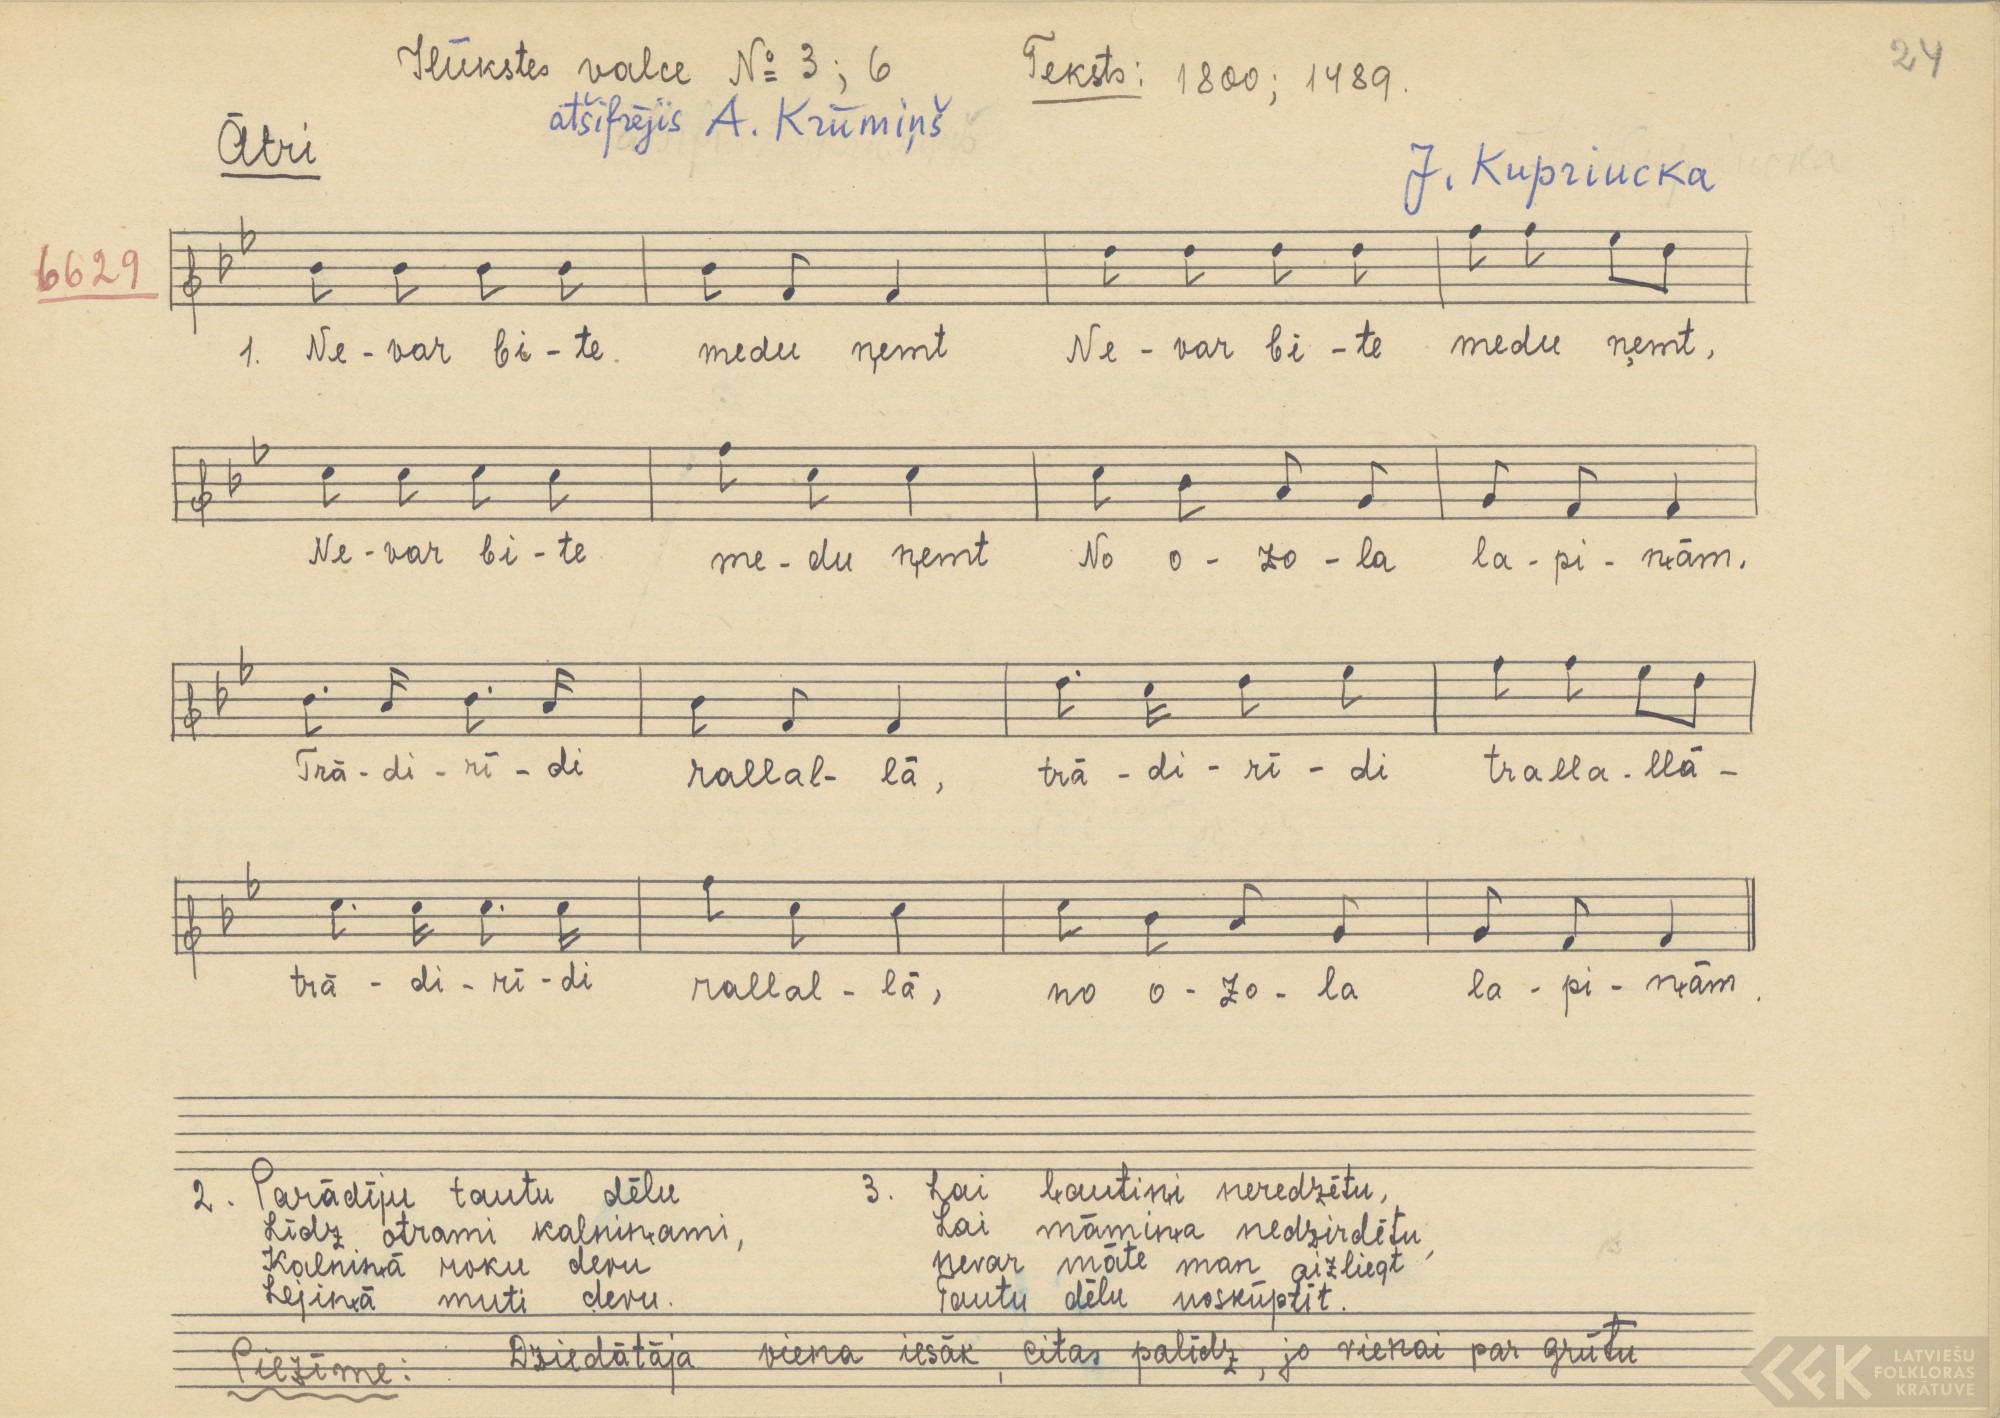 24
Ilūkstes valce № 3; 6 Teksts: 1800; 1489.
atšifrējis A. Krūmiņš
Ātri
J. Kupriucka
6629
1. Ne-var bi-te. medu ņemt Ne-var bi-te medu ņemt,
Ne-var bi-te me-du ņemt No o-zo-la la-pi-ņām.
Trā-di-rī-di rallal-lā, trā-di-rī-di tralla-llā-
trā-di-rī-di rallal-lā, no o-zo-la la-pi-ņām.
2. Parādīju tautu dēlu
Līdz otrami kalniņami,
Kalniņā roku devu
Lejiņā muti devu.
3. Lai ļautiņi neredzētu,
Lai māmiņa nedzirdētu,
nevar māte man aizliegt
Tautu dēlu noskūptīt.
Piezīme: Dziedātāja viena iesāk, citas palīdz, jo vienai par grūtu
LATVIEŠU
FOLKLORAS
KRĀTUVE